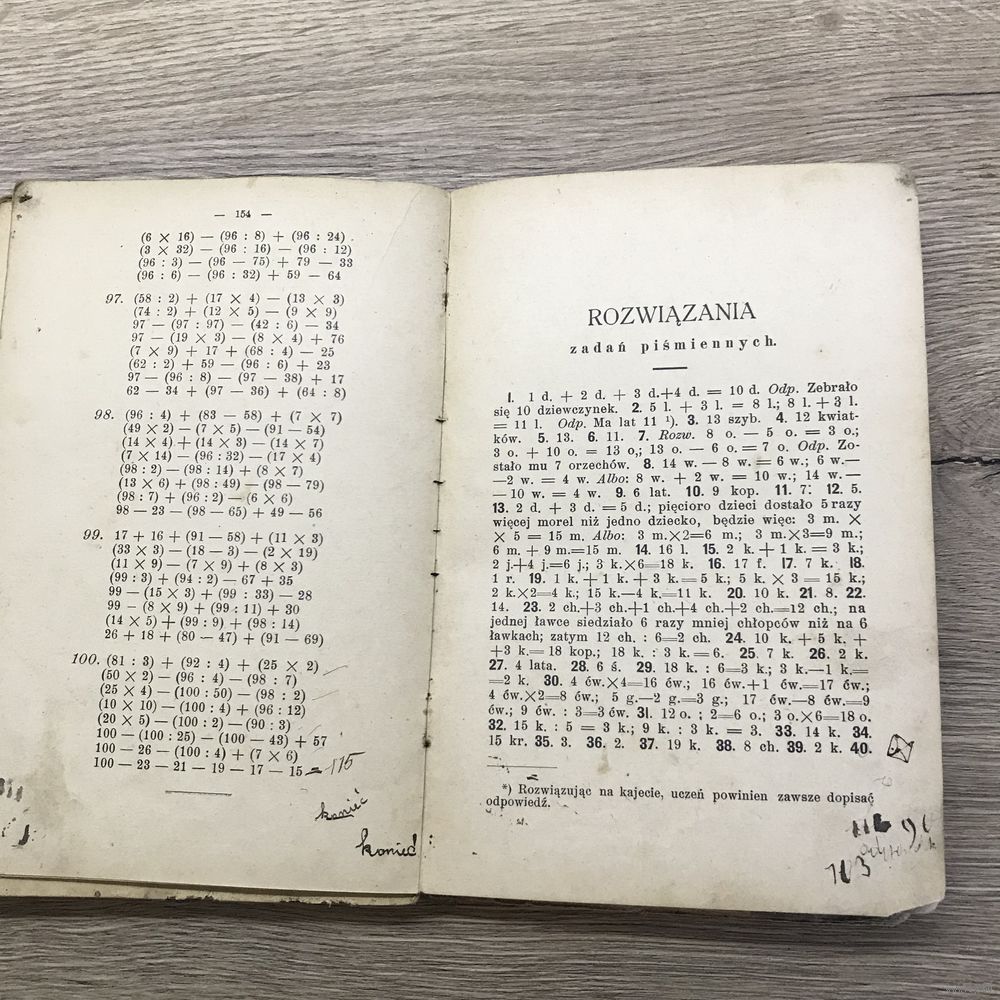 — 154 —
(6 × 16) — (96 : 8) + (96 : 24)
(3 × 32) — (96 : 16) — (96 : 12)
(96 : 3) — (96 — 75) + 79 — 33
(96 : 6) — (96 : 32) + 59 — 64
97. (58 : 2) + (17 × 4) — (13 × 3)
(74 : 2) + (12 × 5) — (9 × 9)
97 — (97 : 97) — (42 : 6) — 34
97 — (19 × 3) — (8 × 4) + 76
(7 × 9) + 17 + (68 : 4) — 25
(62 : 2) + 59 — (96 : 6) + 23
97 — (96 : 8) — (97 — 38) + 17
62 — 34 + (97 — 36) + (64 : 8)
98. (96 : 4) + (83 — 58) + (7 × 7)
(49 × 2) — (7 × 5) — (91 — 54)
(14 × 4) + (14 × 3) — (14 × 7)
(7 × 14) — (96 : 32) — (17 × 4)
(98 : 2) — (98 : 14) + (8 × 7)
(13 × 6) + (98 : 49) — (98 — 79)
(98 : 7) + (96 : 2) — (6 × 6)
98 — 23 — (98 — 65) + 49 — 56
99. 17 + 16 + (91 — 58) + (11 × 3)
(33 × 3) — (18 — 3) — (2 × 19)
(11 × 9) — (7 × 9) + (8 × 3)
(99 : 3) + (94 : 2) — 67 + 35
99 — (15 × 3) + (99 : 33) — 28
99 — (8 × 9) + (99 : 11) + 30
(14 × 5) + (99 : 9) + (98 : 14)
26 + 18 + (80 — 47) + (91 — 69)
100. (81 : 3) + (92 : 4) + (25 × 2)
(50 × 2) — (96 : 4) — (98 : 7)
(25 × 4) — (100 : 50) — (98 : 2)
(10 × 10) — (100 : 4) + (96 : 12)
(20 × 5) — (100 : 2) — (90 : 3)
100 — (100 : 25) — (100 — 43) + 57
100 — 26 — (100 : 4) + (7 × 6)
100 — 23 — 21 — 19 — 17 — 15 = 115
konieć
konieć
ROZWIĄZANIA
zadań piśmiennych.
1. 1 d. + 2 d. + 3 d.+4 d. = 10 d. Odp. Zebrało
się 10 dziewczynek. 2. 5 l. + 3 l. = 8 l.; 8 l. + 3 l.
= 11 l. Odp. Ma lat 11 ¹). 3. 13 szyb. 4. 12 kwiat-
ków. 5. 13. 6. 11. 7. Rozw. 8 o. — 5 o. = 3 o.;
3 o. + 10 o. = 13 o,; 13 o. — 6 o. = 7 o. Odp. Zo-
stało mu 7 orzechów. 8. 14 w. — 8 w. = 6 w.; 6 w.—
—2 w. = 4 w. Albo: 8 w. + 2 w. = 10 w.; 14 w.—
— 10 w. = 4 w. 9. 6 lat. 10. 9 kop. 11. 7. 12. 5.
13. 2 d. + 3 d. = 5 d.; pięcioro dzieci dostało 5 razy
więcej morel niż jedno dziecko, będzie więc: 3 m. ×
× 5 = 15 m. Albo: 3 m.×2=6 m.; 3 m.×3=9 m.;
6 m. + 9 m.=15 m. 14. 16 l. 15. 2 k. + 1 k. = 3 k.;
2 j.+4 j.=6 j.; 3 k.×6=18 k. 16. 17 f. 17. 7 k. 18.
1 r. 19. 1 k. + 1 k. + 3 k. = 5 k.; 5 k. × 3 = 15 k.;
2 k.×2=4 k.; 15 k.—4 k.=11 k. 20. 10 k. 21. 8. 22.
14. 23. 2 ch.+3 ch.+1 ch.+4 ch.+2 ch.=12 ch.; na
jednej ławce siedziało 6 razy mniej chłopców niż na 6
ławkach; zatym 12 ch. : 6=2 ch. 24. 10 k. + 5 k. +
+3 k.= 18 kop.; 18 k. : 3 k. = 6. 25. 7 k. 26. 2 k.
27. 4 lata. 28. 6 ś. 29. 18 k. : 6=3 k.; 3 k.—1 k.=
=2 k. 30. 4 ćw.×4=16 ćw.; 16 ćw.+1 ćw.=17 ćw.;
4 ćw.×2=8 ćw.; 5 g.—2 g.=3 g.; 17 ćw.—8 ćw.=9
ćw.; 9 ćw. : 3=3 ćw. 31. 12 o. : 2=6 o.; 3 o.×6=18 o.
32. 15 k. : 5 = 3 k.; 9 k. : 3 k. = 3. 33. 14 k. 34.
15 kr. 35. 3. 36. 2. 37. 19 k. 38. 8 ch. 39. 2 k. 40.
*) Rozwiązując na kajecie, uczeń powinien zawsze dopisać
odpowiedź.